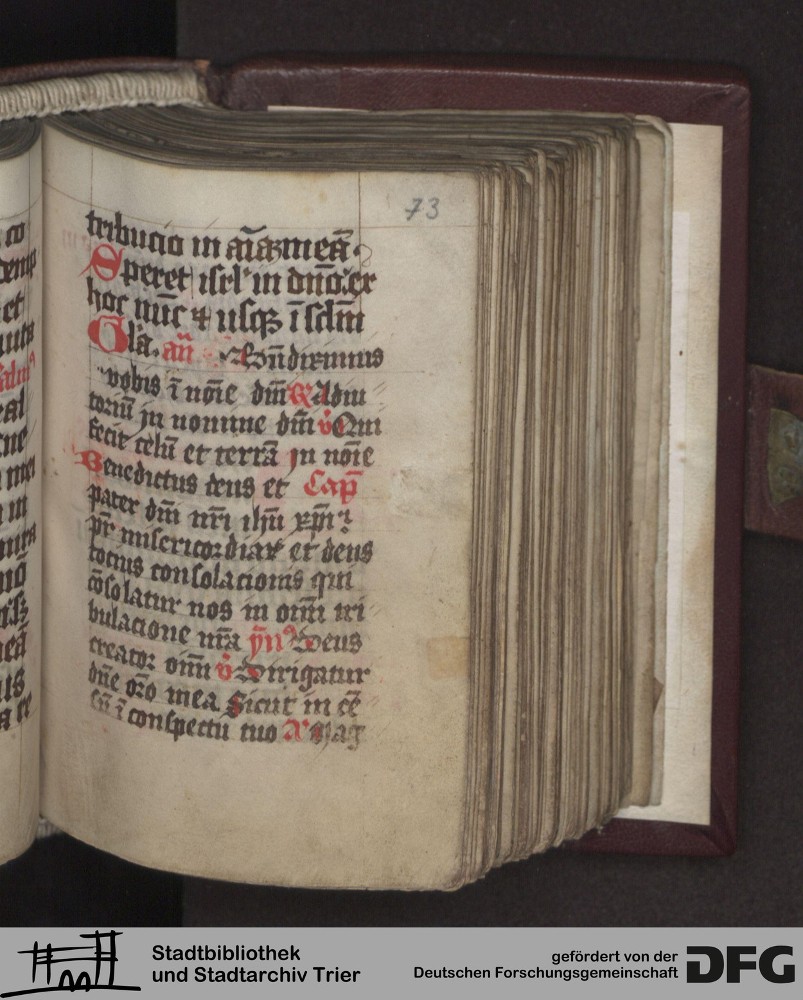 73
tribucio in aīaʒ meā
Speret isrl' in dnō. ex
hoc nūc ⁊ usqʒ ī sclm̄
Gl̄a. an̄ Bn̄diximus
vobis ī noīe dm̄i R Adiu
toriū in nomine dm̄i v̊ Qui
fecit celū et terrā in noīe
Benedictus deus et Cap̄
pater dm̄i nr̄i ihū xp̄i
pr̄ misericordiaꝝ et deus
tocius consolacionis qui
cōsolatur nos in om̄i tri
bulacione nr̄a ym̄ Deus
creator om̄i v̊ Dirigatur
dn̄e or̄o mea Sicut in cē
sū ī conspectu tuo A Mag
Stadtbibliothek
und Stadtarchiv Trier
gefördert von der
Deutschen Forschungsgemeinschaft
DFG